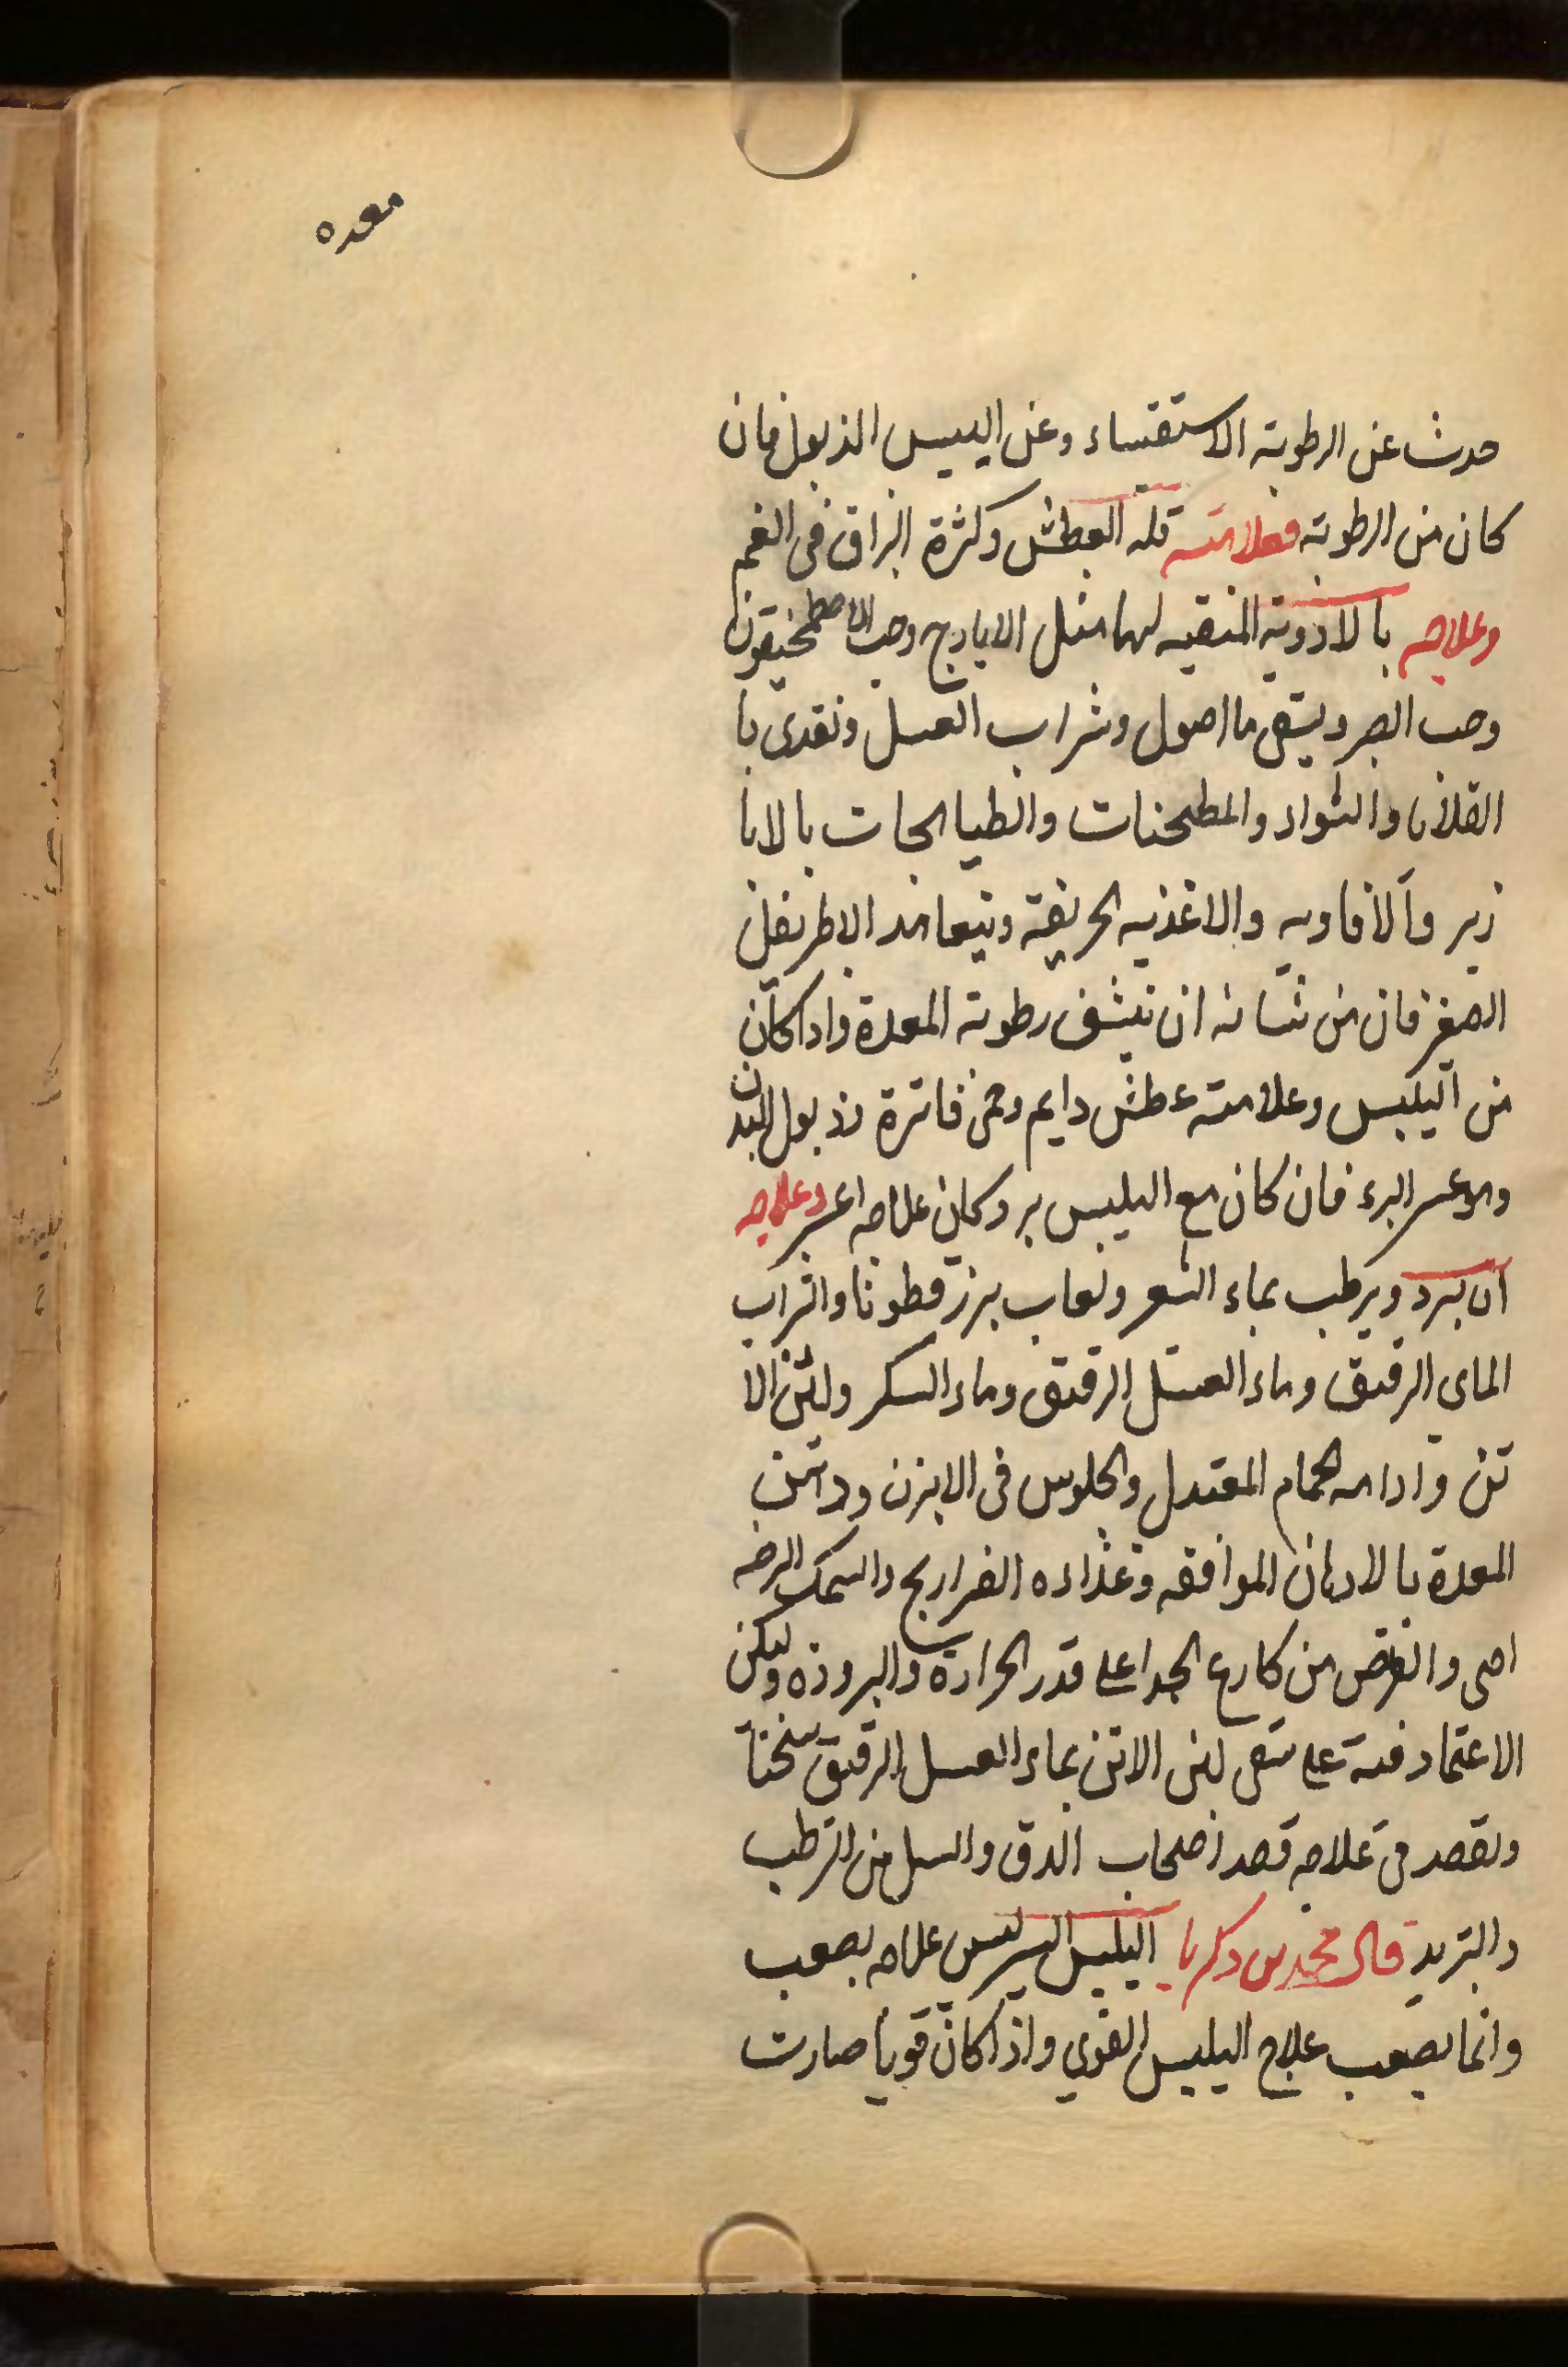 معده
حدث عن الرطوبة الاستقساء وعن اليبس الذبول فان
كان من الرطوبة فعلامته قله العطش وكثرة البزاق فى الفم
وعلاجه بالادوية المنقيه لها مثل الايارج وحب الاصطمخيقون
وحب الصبر ويسقى ما اصول وشراب العسل ونغدى با
القلايا والشواء والمطجنات والطياهجات بالابا
زير والافاويه والاغذيه الحريفة ويتعاهد الاطريفل
الصغير فان من شانه ان ينشف رطوبة المعدة واذا كان
من اليبس وعلامته عطش دايم وحمى فاترة وذبول البدن
وهو عسر البرء فان كان مع اليبس برد كان علاجه اعسر وعلاجه
ان يبرد ويرطب بماء الشعير ولعاب بزر قطونا والشراب
الماى الرقيق وماء العسل الرقيق وماء السكر ولبن الا
تن وادامه الحمام المعتدل والجلوس فى الابزن ودهن
المعدة بالادهان الموافقه وغذاءه الفراريج والسمك الرضر
اضى والغض من كارع الجدا على قدر الحرارة والبرودة وليكن
الاعتماد فيه على سقى لبن الاتن بماء العسل الرقيق سخنا
ويقصد فى علاجه قصد اصحاب الدق والسل من الترطيب
والتبريد قال محمد بن زكريا اليبس اليسير ليس علاجه بصعب
وانما يصعب علاج اليبس القوي واذا كان قويا صارت